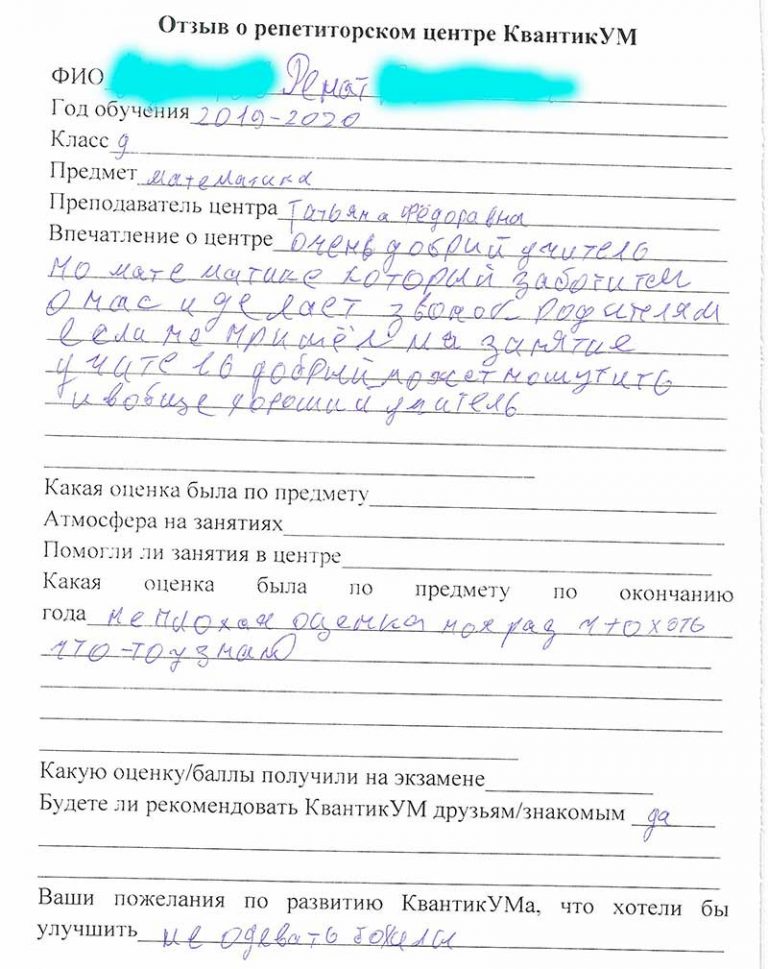 Отзыв о репетиторском центре КвантикУМ
ФИО Ренат
Год обучения 2019-2020
Класс 9
Предмет математика
Преподаватель центра Татьяна Фёдоравна
Впечатление о центре очень добрий учитель
по математике который заботится
о нас и делает звонок родителям
если не пришёл на занятие
учитель добрый может пошутить
и вобще хороший учитель
Какая оценка была по предмету
Атмосфера на занятиях
Помогли ли занятия в центре
Какая оценка была по предмету по окончанию
года неплохая оценка но я рад что хоть
что-то узнал
Какую оценку/баллы получили на экзамене
Будете ли рекомендовать КвантикУМ друзьям/знакомым да
Ваши пожелания по развитию КвантикУМа, что хотели бы
улучшить не одевать бахилы